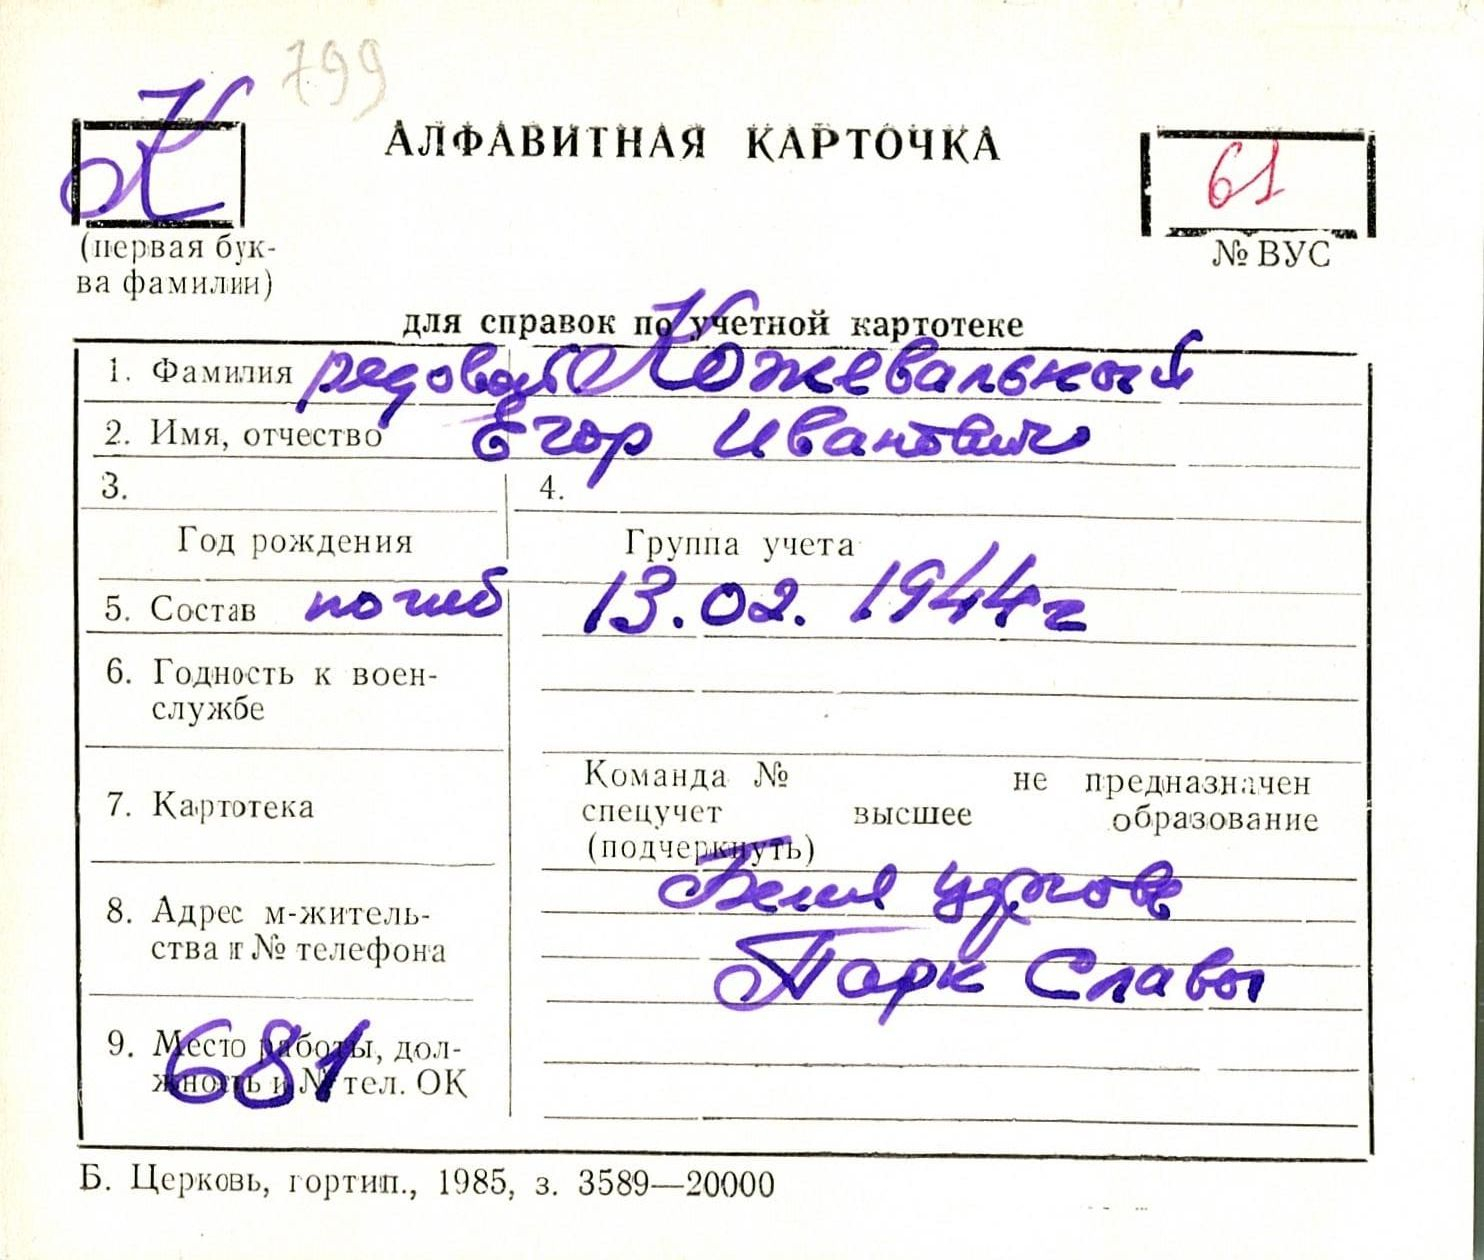 799
К
АЛФАВИТНАЯ КАРТОЧКА
61
(первая бук-
ва фамилии)
№ ВУС
для справок по учетной картотеке
1. Фамилия рядовой Кожевальный
2. Имя, отчество Егор Иванович
3. 4.
Год рождения Группа учета
5. Состав погиб 13.02.1944г
6. Годность к воен-
службе
7. Картотека
Команда № не предназначен
спецучет высшее образование
(подчеркнуть)
8. Адрес м-житель-
ства и № телефона
Белая церковь
Парк Славы
9. Место работы, дол-
жность и № тел. ОК
681
Б. Церковь, гортип., 1985, з. 3589—20000